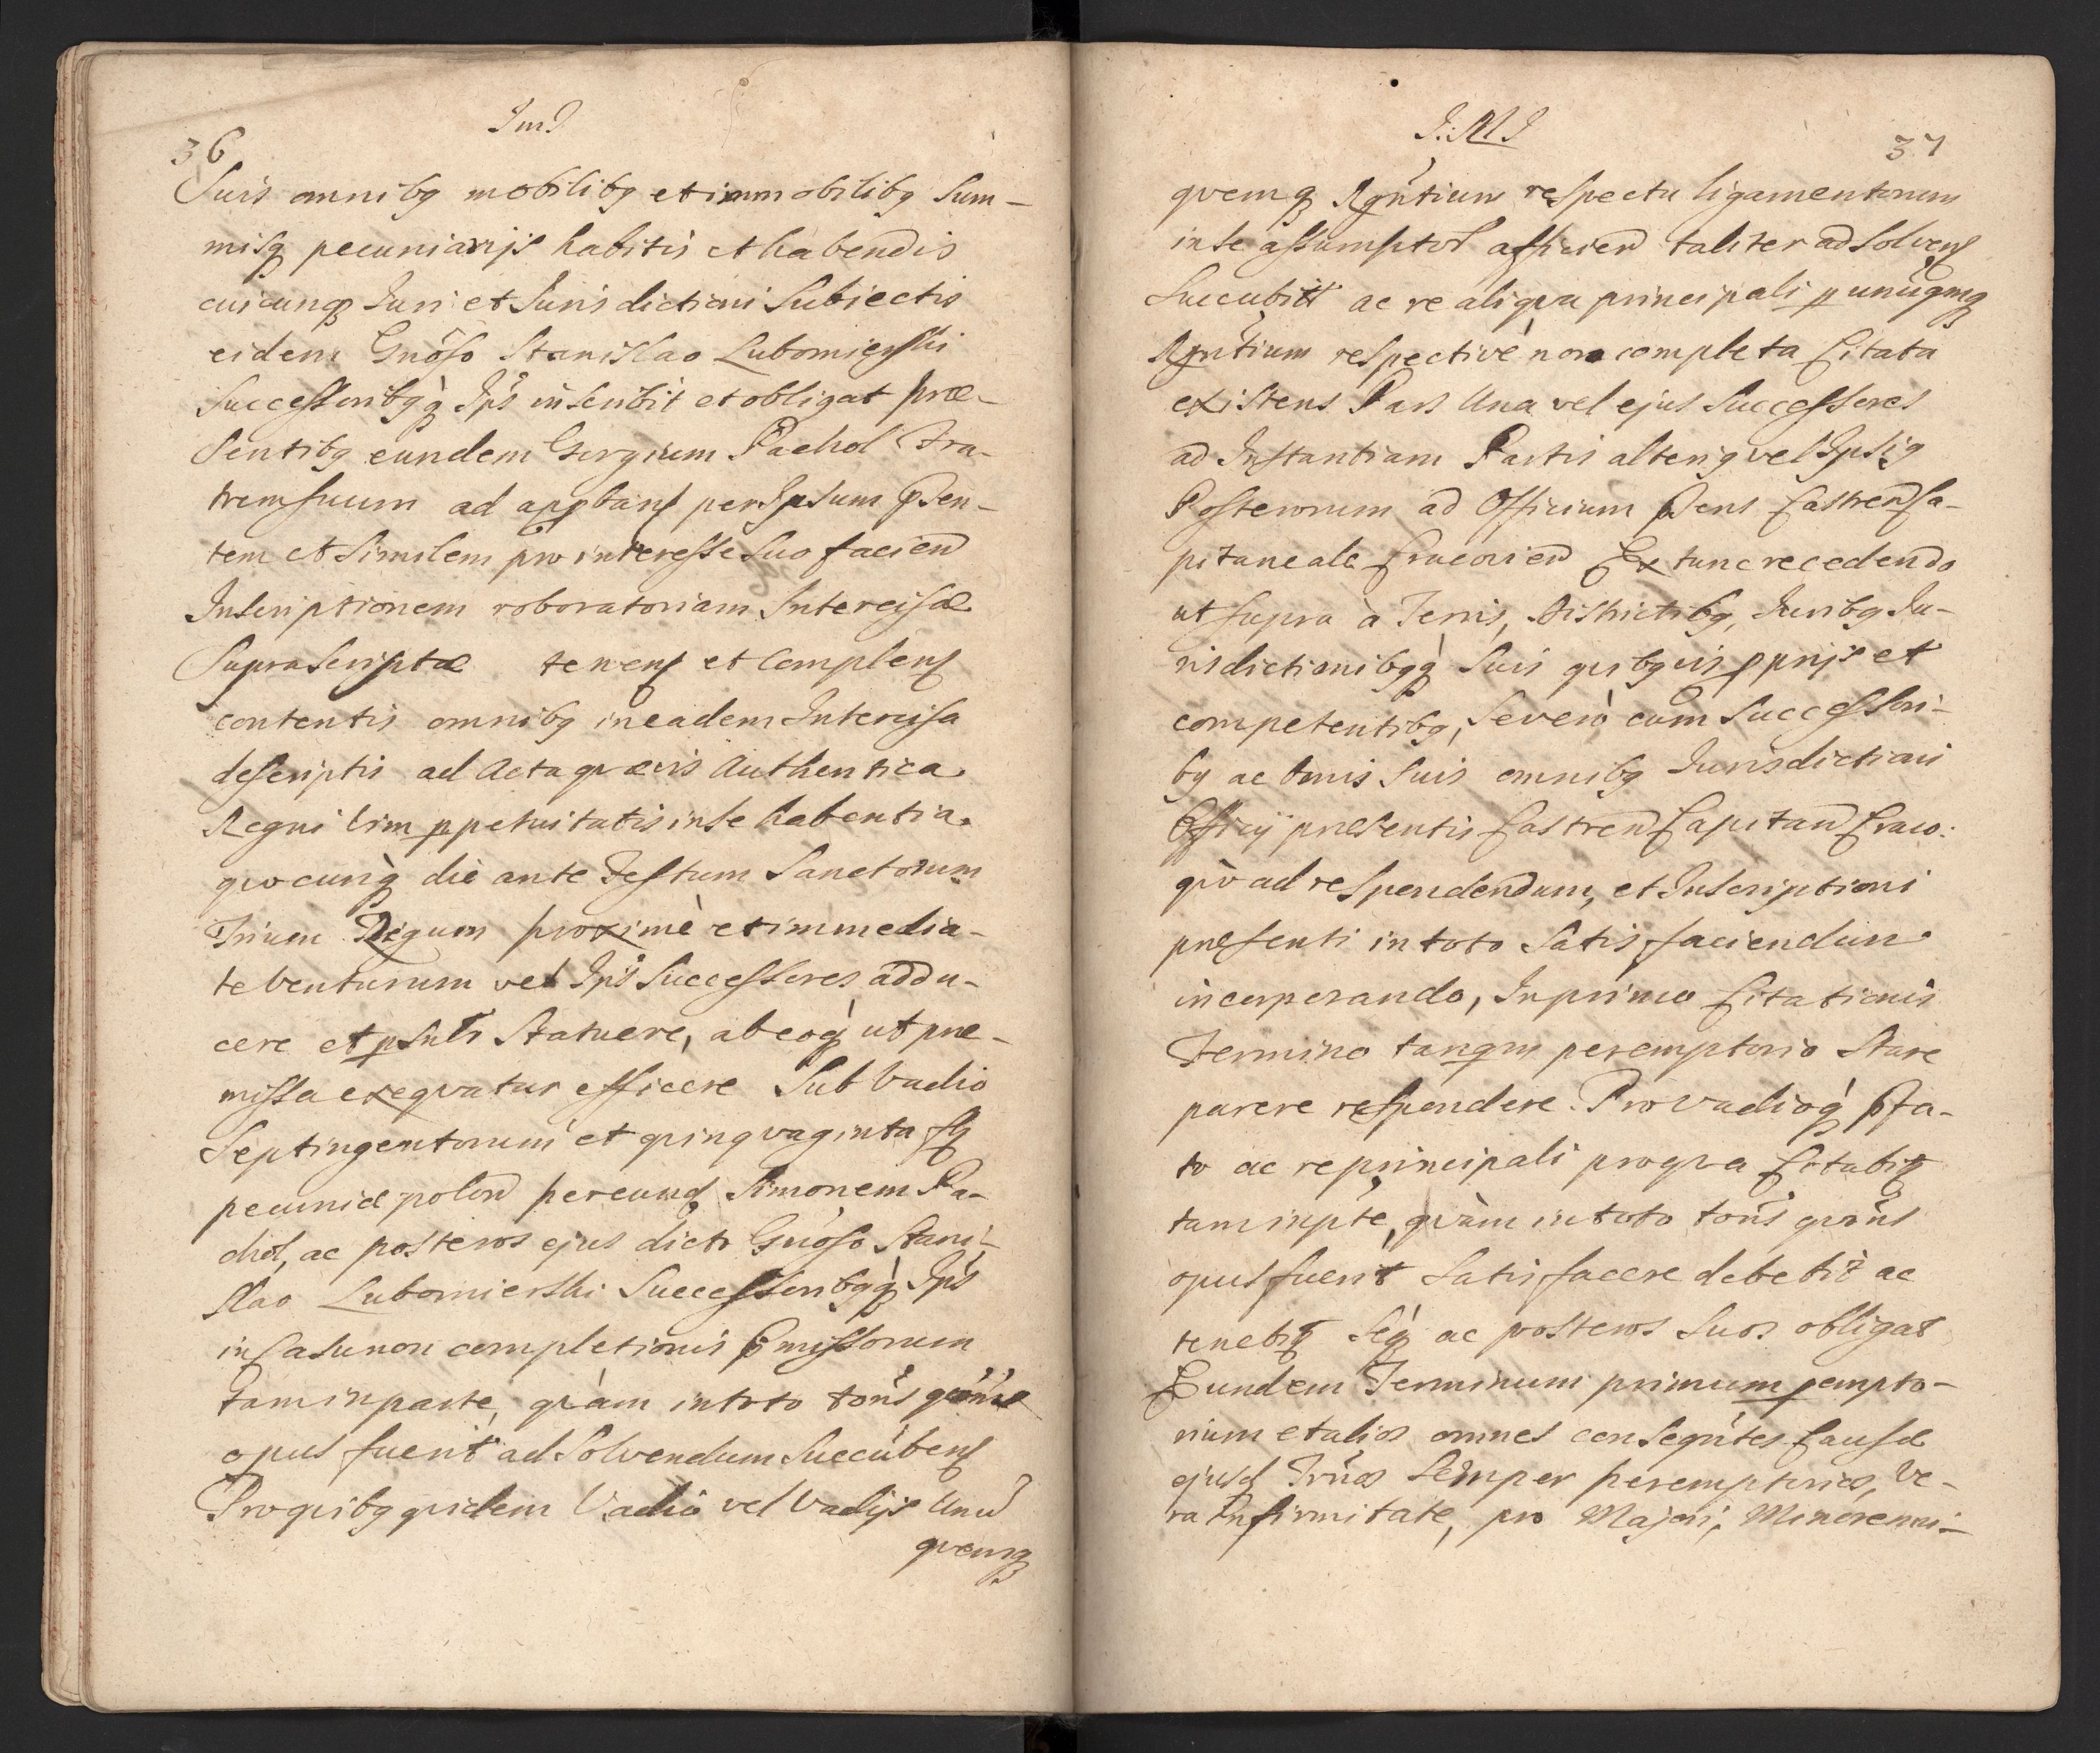 36
JmJ
Suis omnibq mobilibq et immobilibq Sum-
misq pecuniarijs habitis et habendis
cuicunq Juri et Jurisdictioni Subiectis
eidem Gnoso Stanislao Lubomierski
Successoribqq Ips inscribit et obligat prae-
sentibq eundem Georgium Pachol Fra-
trem suum ad per Ipsum Psen-
tem et Similem pro interesse Suo faciend
Inscriptionem roboratoriam Intercisae
Suprascriptae tenens et complens
contentis omnibq in eadem Intercisa
descriptis ad Acta quaevis Authentica
Regni Vim ppetuitatis in se habentia
quocunq die ante Festum Sanctorum
Trium Regum proxime et immedia-
te venturum vel Ips Successores addu-
cere et Statuere, ab eoq ut prae-
missa exequatur efficere Sub Vadio
Septingentorum et quinquaginta fq
pecuniae polon per eund Simonem Pa-
chol, ac posteros ejus dicto Gnoso Stani-
slao Lubomierski Successoribqq Ips
in Casu non completionis Pmissorum
tam in parte, quàm in toto toties
opus fuerit ad Solvendum Succubens
Pro quibq quidem Vadio vel Vadijs Unu
quemq

J.M.J
37
quemq Rgntium respectu ligamentorum
in se assumptor afficien taliter ad Solvens
Succubitt ac re aliqua principali p unuqmq
Rgntium respective non completa Citata
existens Pars Una vel ejus Successores
ad Instantiam Partis alteriq vel Ipsiq
Posterorum ad Officium Psens Castren Ca-
pitaneale Cracovien Ex tunc recedendo
ut supra à Terris, Districtibq, Juribq Ju-
risdictionibqq Suis quibqvis pprijs et
competentibq, Se vero cum Successori-
bq ac bonis Suis omnibq Jurisdictioni
Officij praesentis Castren Capitan Craco:
quo ad respondendum, et Inscriptioni
praesenti in toto Satisfaciendum
incorporando, In primo Citationis
Termino tanqm peremptorio Stare
parere respondere. Pro Vadioq Pfa-
to ac re principali pro qua Citabit
tam inpte, quàm in toto tons quons
opus fuerit Satisfacere debebit ac
tenebit Seq ac posteros Suos obligat
Eundem Terminum primum pempto-
rium et alios omnes consegntes Causae
ejusd Trnos Semper peremptorios, Ve-
ra Infirmitate, pro Majori, Minorenni-